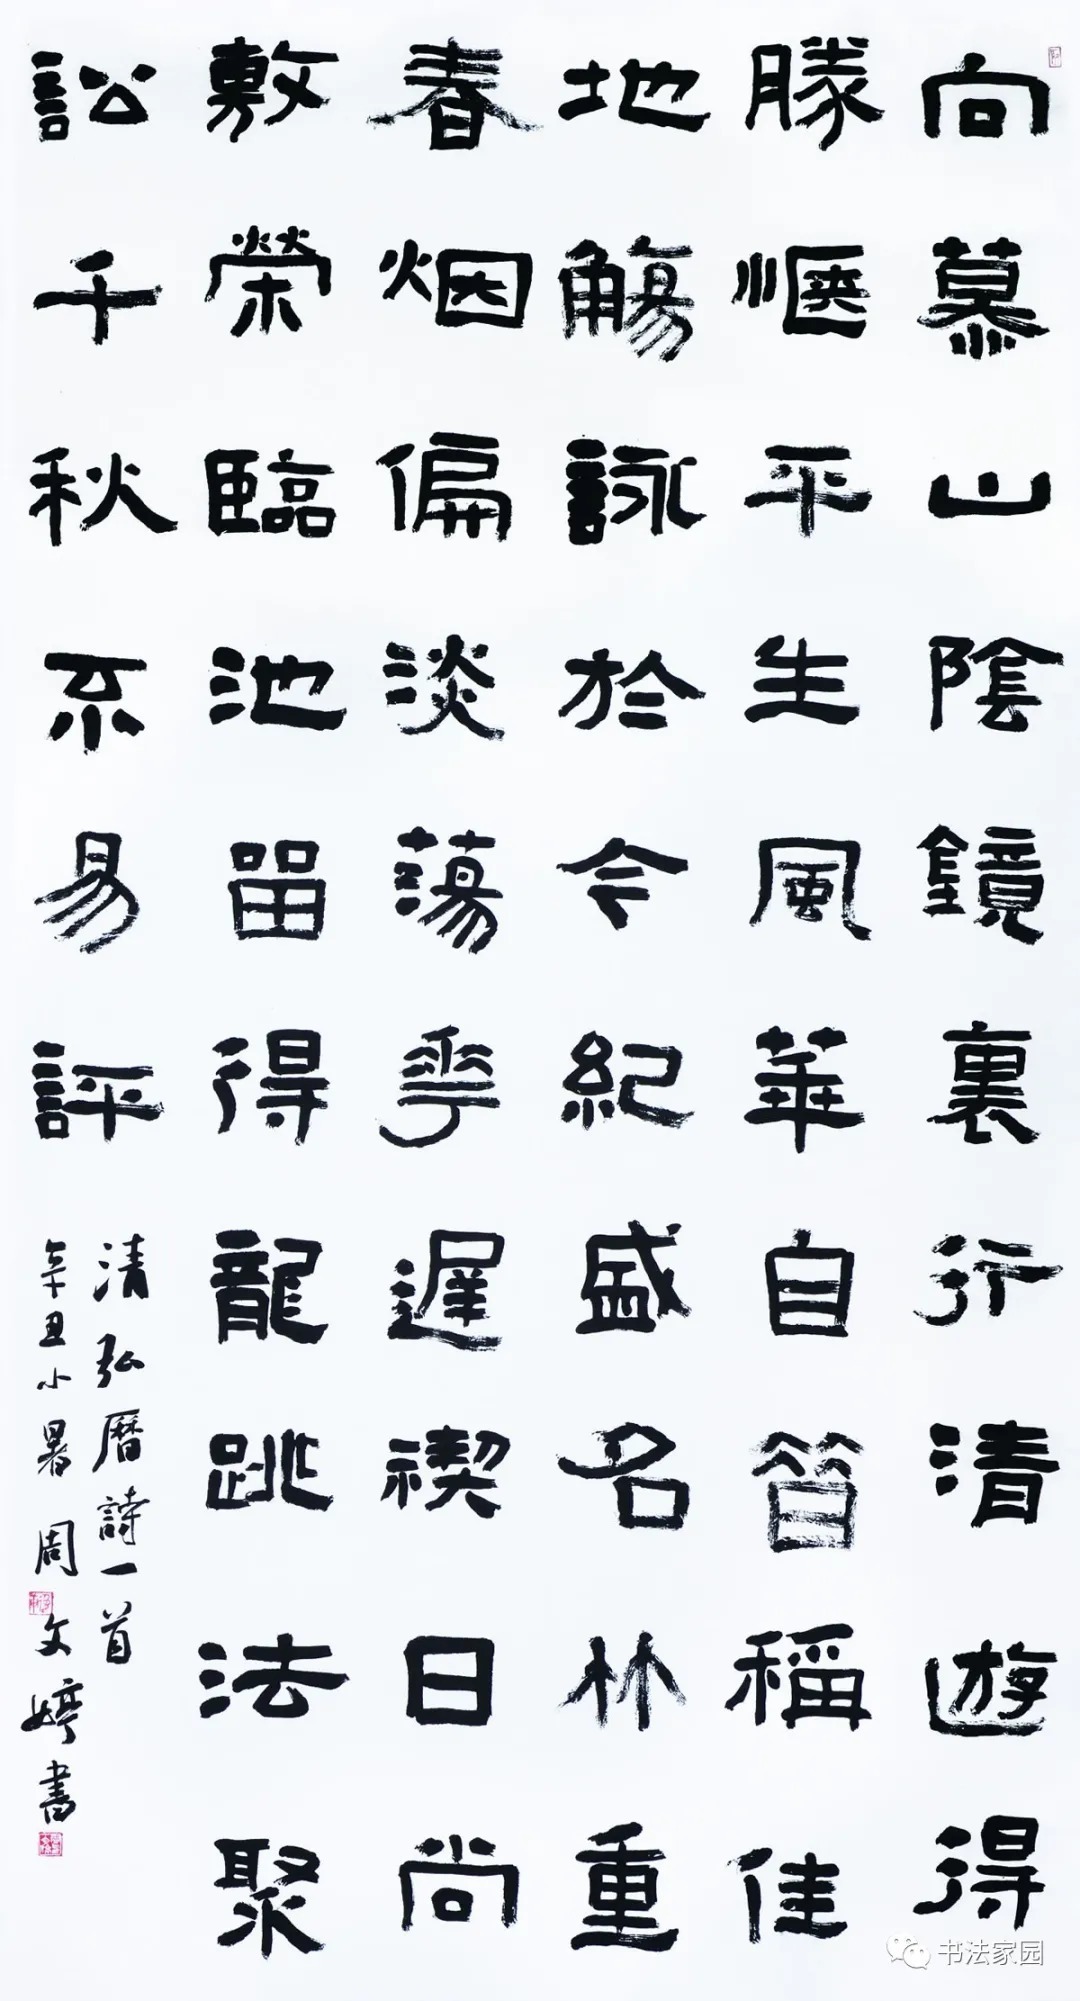 向慕山陰鏡裏行清遊得
勝愜平生風華自昔稱佳
地觴詠於今紀盛名竹重
春烟偏淡蕩花遲禊日尚
敷榮臨池留得龍跳法聚
訟千秋不易評
清弘曆詩一首
辛丑小暑周文婷書
书法家园